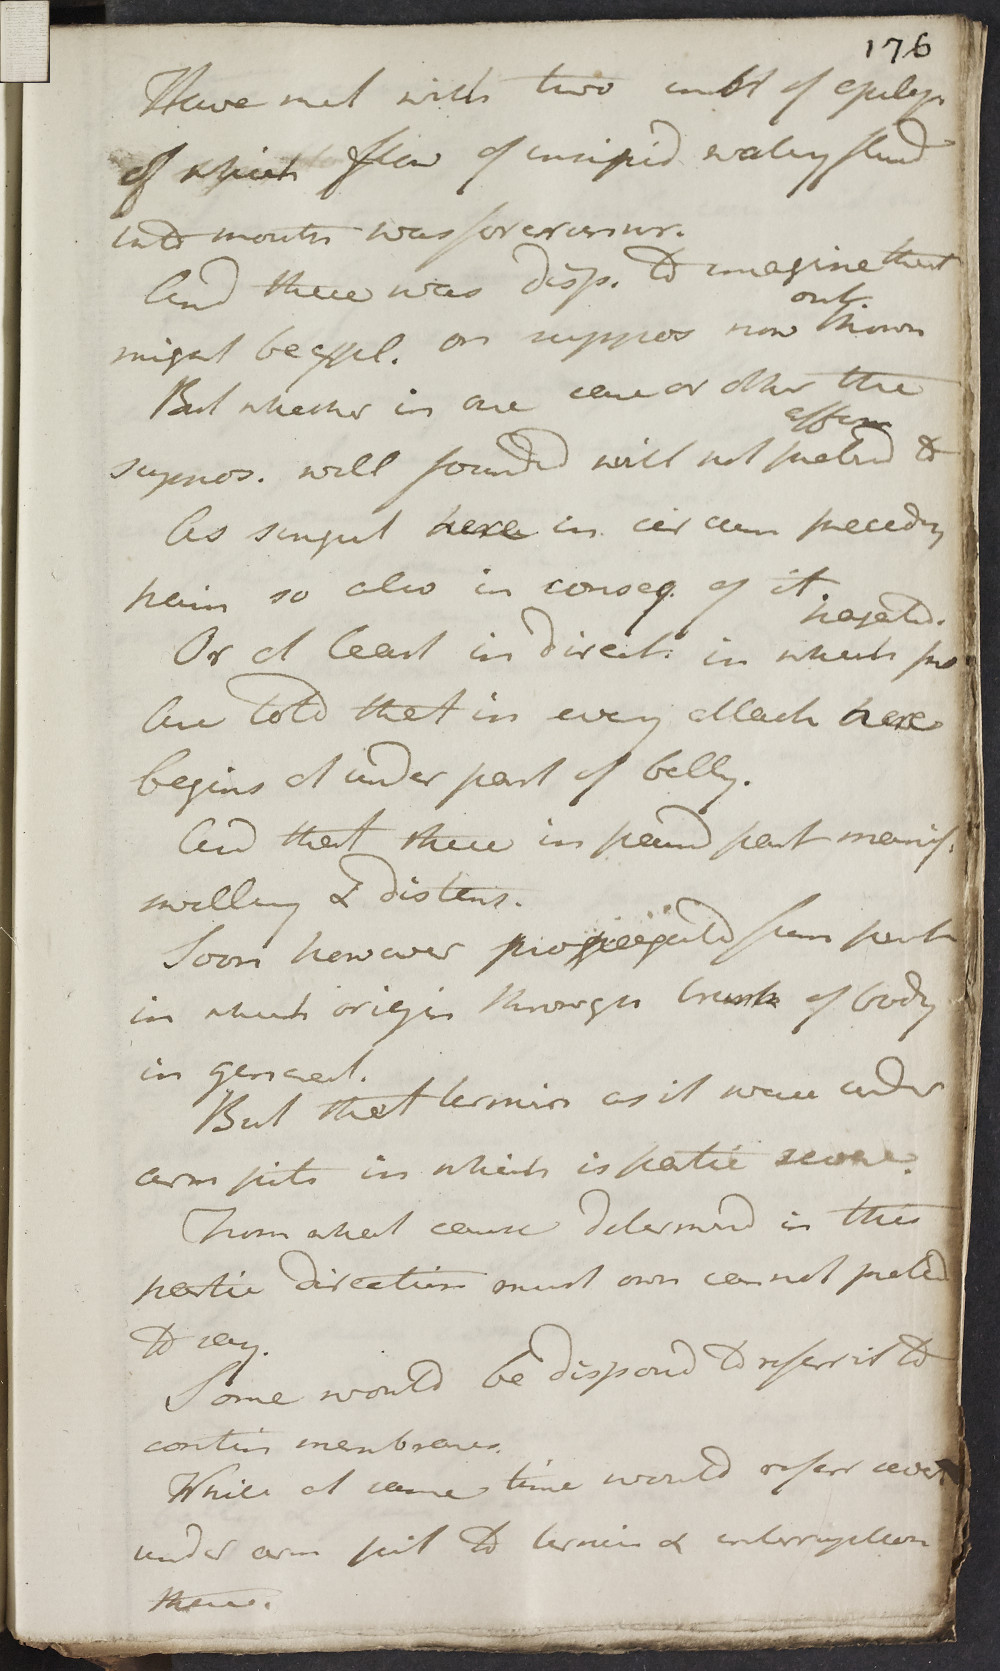 176
Have met with two inst of epilep
of which flow of insipid watery fluid
into mouth was forerunner.
And there was disp. to imagine that
might be appl. on suppos now thrown
out.
But whether in one case or other the
suppos. well founded will not pretend to
affirm
As singul here in circum preceding
pain so also in conseq. of it.
Or at least in direct: in which
pagated.
Are told that in every attack here
begins at under part of belly.
And that there in pained part manif.
swelling & distens.
Soon however propagated from part
in which origin through trunk of body
in general.
But that termin as it were under
arm pits in which is partic severe.
From what cause determined in this
partic direction must own cannot pretend
to say.
Some would be disposed to refer it to
contin membranes.
While at same time would refer sever
under arm pit to termin & interruption
there.